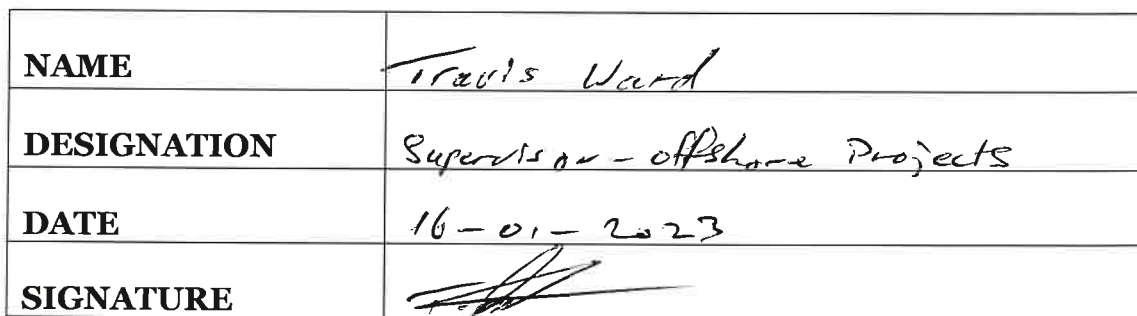 NAME Travis Ward
DESIGNATION Supervisor - offshore Projects
DATE 16-01-2023
SIGNATURE